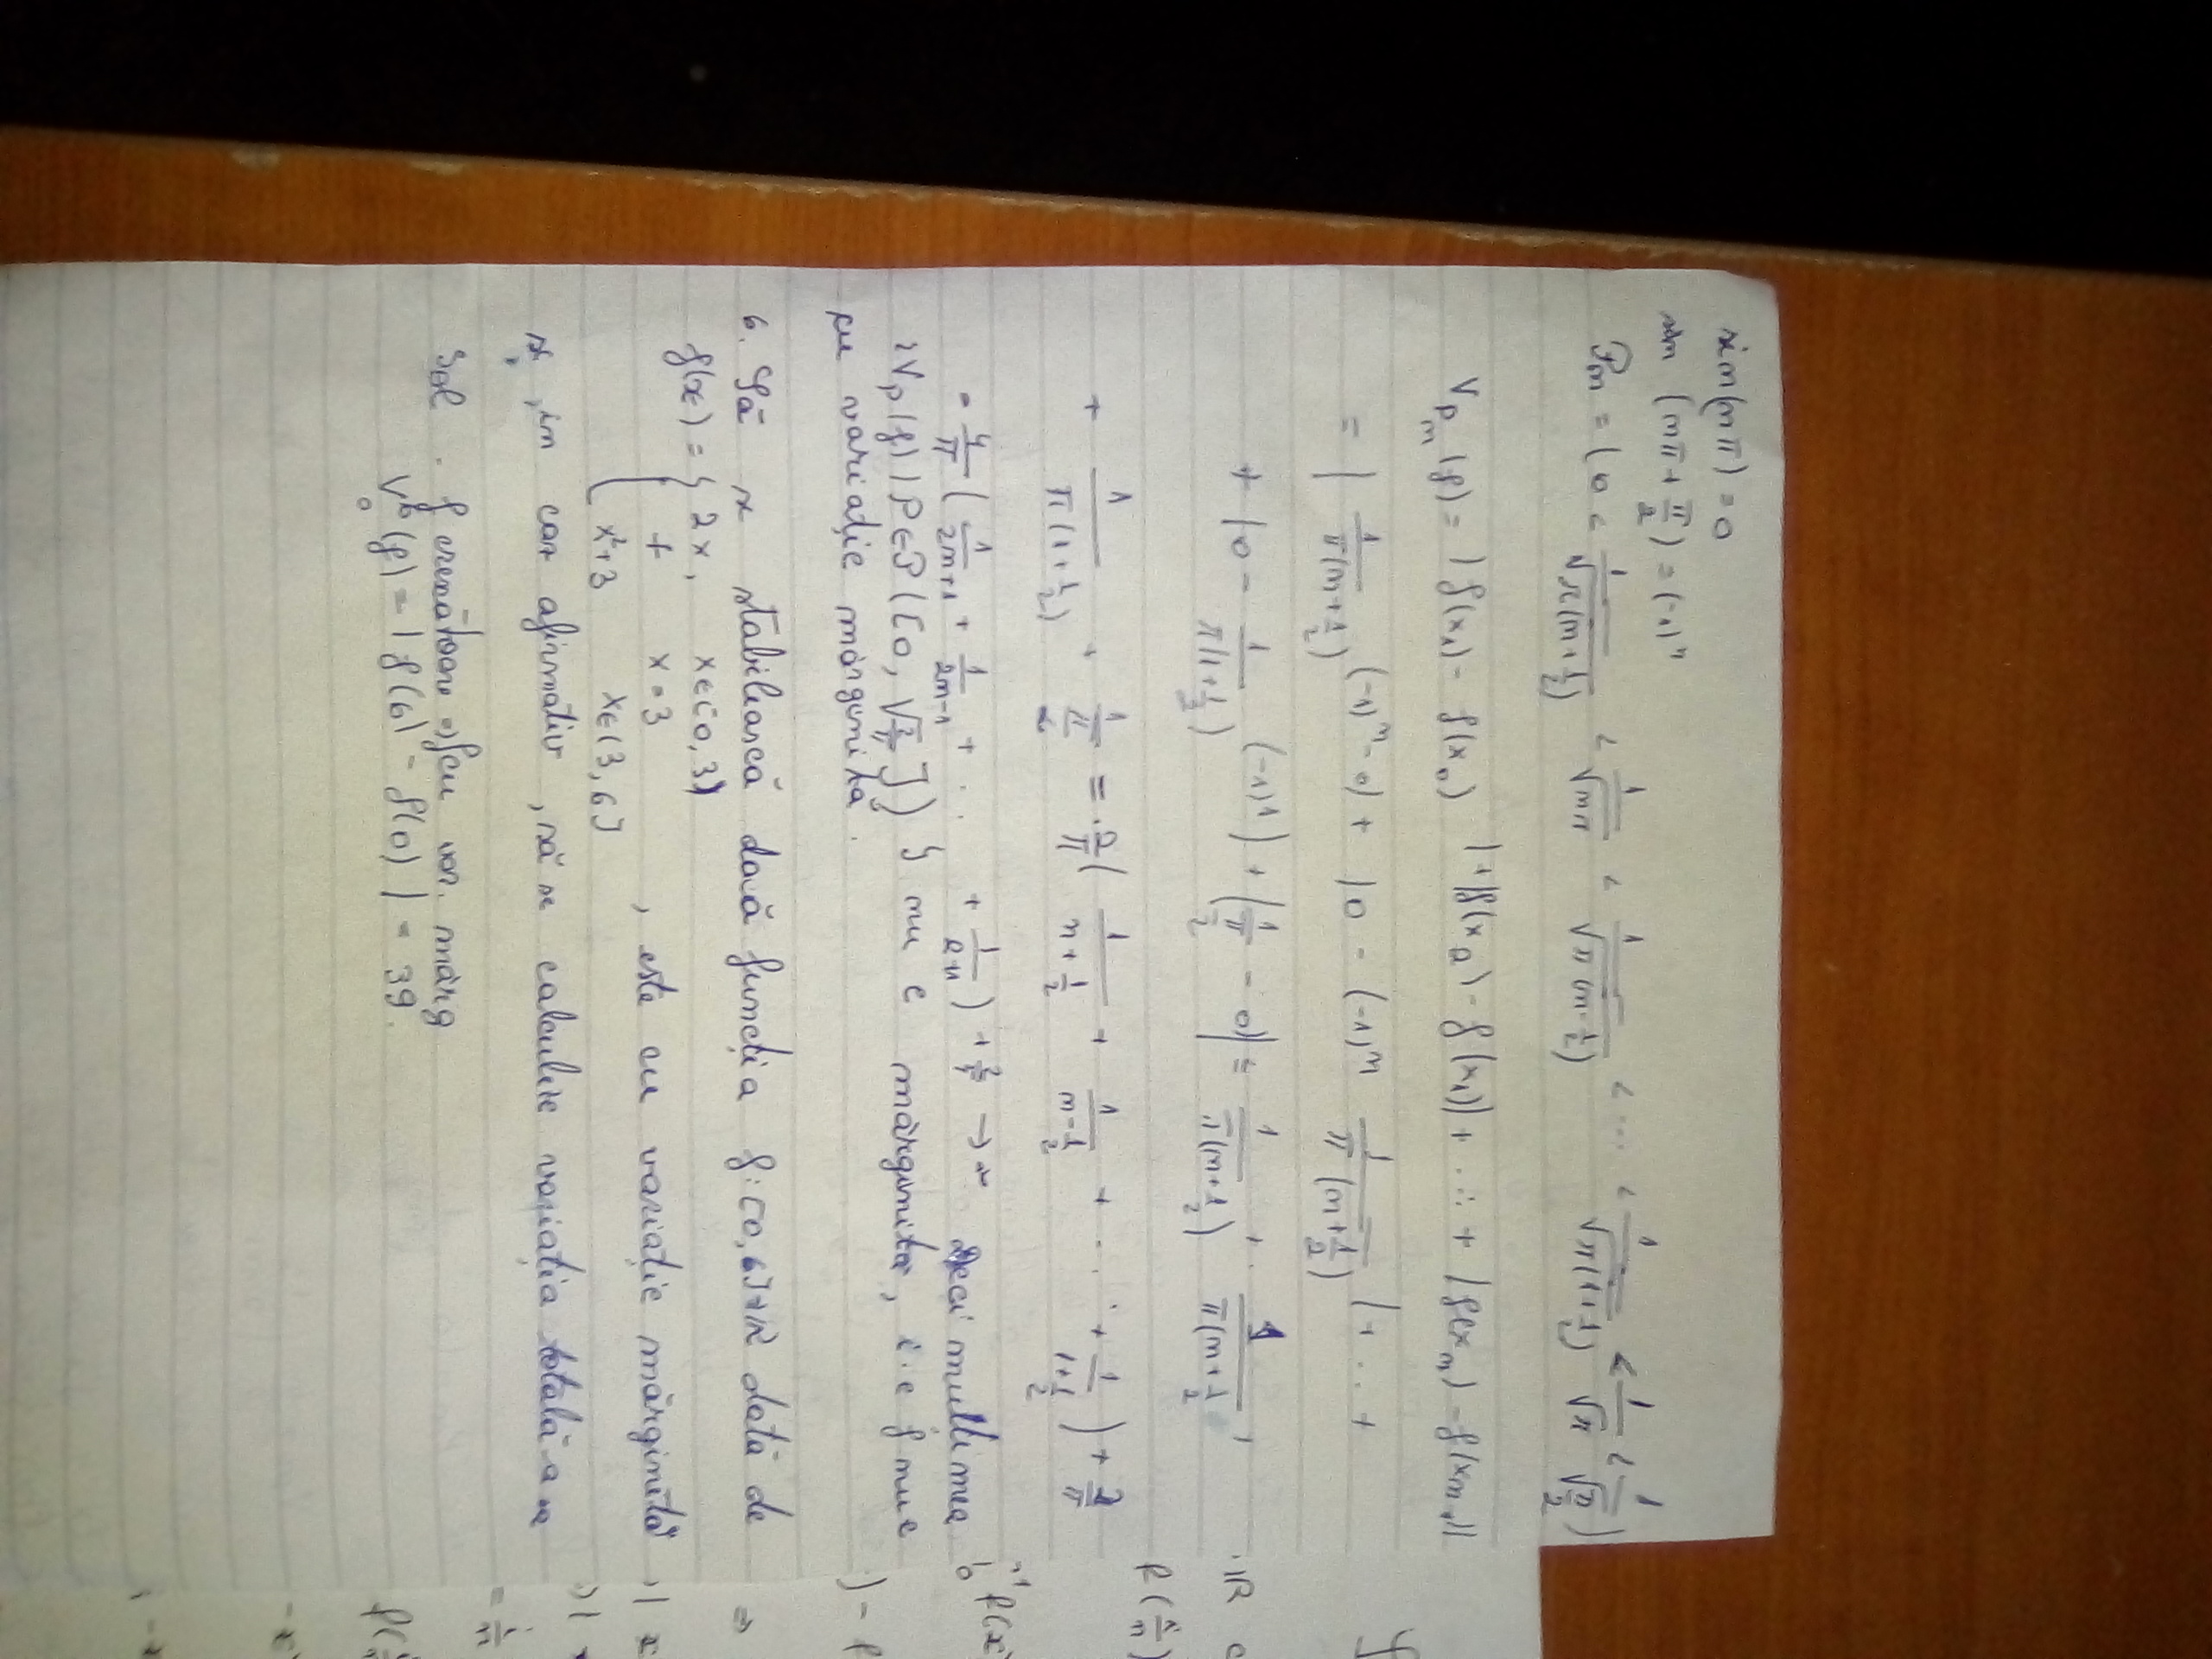 sin(nπ) = 0
sin (nπ + π/2) = (-1)^n
Pn = (0 < 1/√(π(n+1/2)) < 1/√(nπ) < 1/√(π(n-1/2)) < ... < 1/√(π(1+1/2)) < 1/√π < 1/√(π/2))
V_Pn (f) = |f(x1) - f(x0)| + |f(x2) - f(x1)| + ... + |f(xn) - f(xn-1)|
= | 1/(π(n+1/2)) (-1)^n - 0| + |0 - (-1)^n 1/(π(n+1/2)) | + ... +
+ |0 - 1/(π(1+1/2)) (-1)^1 | + |1/(π/2) - 0| = 1/(π(n+1/2)) + 1/(π(n+1/2)) +
+ 1/(π(1+1/2)) + 1/(π/2) = 2/π ( 1/(n+1/2) + 1/(n-1/2) + ... + 1/(1+1/2) ) + 2/π
= 4/π ( 1/(2n+1) + 1/(2n-1) + ... + 1/(2+1) ) + 2/π → ∞ Deci mulțimea
{V_P(f) | P∈P([0, √(2/π)]) } nu e mărginită, i.e f nu e
cu variație mărginită.
6. Să se stabilească dacă funcția f:[0,6]→R dată de
f(x) = { 2x, x∈[0,3)
7 x = 3 , este cu variație mărginită
x²+3 x∈(3,6]
și, în caz afirmativ, să se calculeze variația totală a sa
Sol. f crescătoare ⇒ f cu var. mărg
V_0^6 (f) = |f(6) - f(0)| = 39.